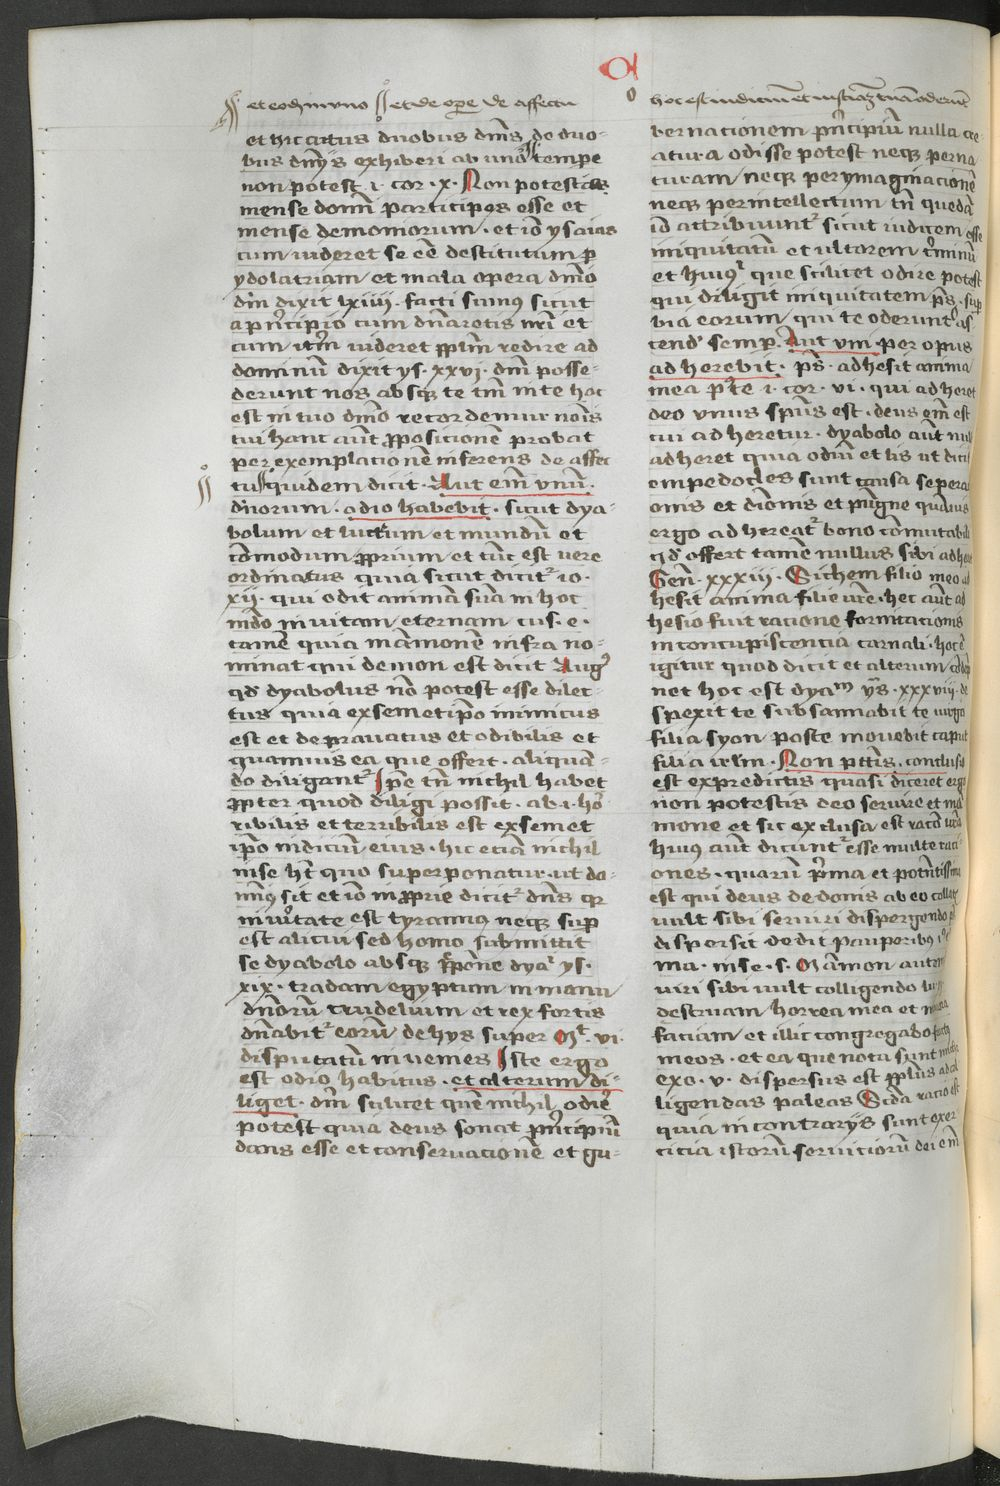 et eodem uno et de opere de affectu
et hic cultus duobus dn̄is de duo-
bus dn̄ijs exhiberi ab uno tempe
non potest .i. cor .x. Non potestis
mense domī participes esse et
mense demoniorum . et iō ysaias
cum uideret se eē destitutum p̄
ydolatriam et mala opera dīno
dīm dixit lxiiii . facti sumus sicut
a pͥncipio cum dn̄areris nr̄i et
cum itͫ uideret ppl̄m redire ad
dominū dixit ys . xxvi . dn̄m posse-
derunt nos absqꝫ te tm̄ in te hoc
est in tuo dīno recordemur noīs
tui hanc aūt ꝓpositionē probat
per exemplacionē inferens de affec
tu quidem dicit . Aut em̄ vnū .
dn̄orum . odio habebit . sicut dya-
bolum et luctum et mundū et
cōmodum ꝓprium et tūc est uere
ordinatus quia sicut dicitᷣ io .
xij . qui odit animā suā in hoc
mūdo in uitam eternam cus . e .
tamē quia māmonē infra no-
minat qui demon est dicit Augꝰ
qd̄ dyabolus nō potest esse dilec-
tus quia ex semetip̄o inimicus
est et deprauatus et odibilis et
quamuis ea que offert . aliquan-
do diligantᷣ Ip̄e tn̄ nichil habet
ꝓpter quod diligi possit . ab .i. hoͬ
ribilis et terribilis est ex semet
ip̄o iudiciū eius . hic etiā nichil
in se ht̄ quo superponatur . ut do-
minꝰ sit et iō inꝓprie dicitᷣ dn̄s qꝛ
in uͥtate est tyrannꝰ neqꝫ sup̄
est alicui sed homo submittit
se dyabolo absqꝫ r̄pōne dyaͬ ys .
xix . tradam egyptum in manu
dn̄orum crudelium et rex fortis
dn̄abitᷣ eorū de hys super Mͭ . vi .
disputatū inuenies Iste ergo
est odio habitus . et alterum di-
liget . dm̄ scilicet quē nichil odiē
potest quia deus sonat pͥncipiū
dans esse et conseruacionē et gu-
hoc est iudiciū et iusticiaꝫ tuā oderūt
bernacionem pͥncipiū nulla cre
atura odisse potest neqꝫ per na
turam neqꝫ per ymaginacionē
neqꝫ per intellectum tn̄ quedā
id attribuuntᷣ sicut iudicem esse
iniquitatū et ultorem tͥminū
et huiꝰ que scilicet odire potest
qui diligit iniquitatem ps̄ . sup
bia eorum qui te oderunt as
cendͭ semp̄ . Aut vni . per opus
adherebit . ps̄ . adhesit anima
mea pꝰ te .i. cor . vi . qui adheret
deo vnus spūs est . deus em̄ est
cui adheretur . dyabolo aūt nul
adheret quia odiū et lis ut dicit
empedocles sunt causa sepera
onis et diōnis et pūgne quāuis
ergo adhereatᷣ bono cōmutabili
qd̄ offert tamē nullus sibi adheret
Gen̄ . xxxiii . Sichem filio meo ad
hesit anima filie ur̄e . hec aūt ad
hesio fuit racione fornicacionis
in concupiscencia carnali . hoc ē
igitur quod dicit et alterum cōtēp
net hoc est dyam̄ ys̄ . xxxviii . de
spexit te subsannabit te uirgo
filia syon poste mouebit caput
filia irlm̄ . Non ptt̄is . conclusio
est ex predictis quasi diceret ergo
non potestis deo seruire et ma
mone et sic exclusa est racō una
huiꝰ aūt dicuntᷣ esse multe raci-
ones . quarū pͥma et potn̄tissima
est qui deus de donis ab eo collatis
uult sibi seruiri dispergendo ps̄
dispersit dedit pauperibꝰ
ma . in se . s . Māmon autem
uiri sibi uult colligendo luc
destruam horrea mea et maiora
faciam et illic congregabo fructus
meos . et ea que nota sunt michi
exo . v . dispersus est ppl̄us ad col
ligendas paleas Scd̄a racio est
quia in contrarijs sunt exer
cicia istorū seruiciorū dei em̄